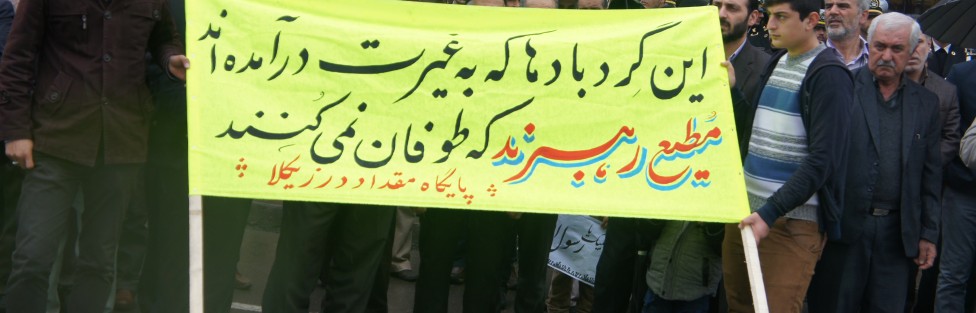 این گردبادها که به غیرت درآمده‌اند
مُطیع رهبرند که طوفان نمی کُنند
پایگاه مقداد درزیکلا
رسول